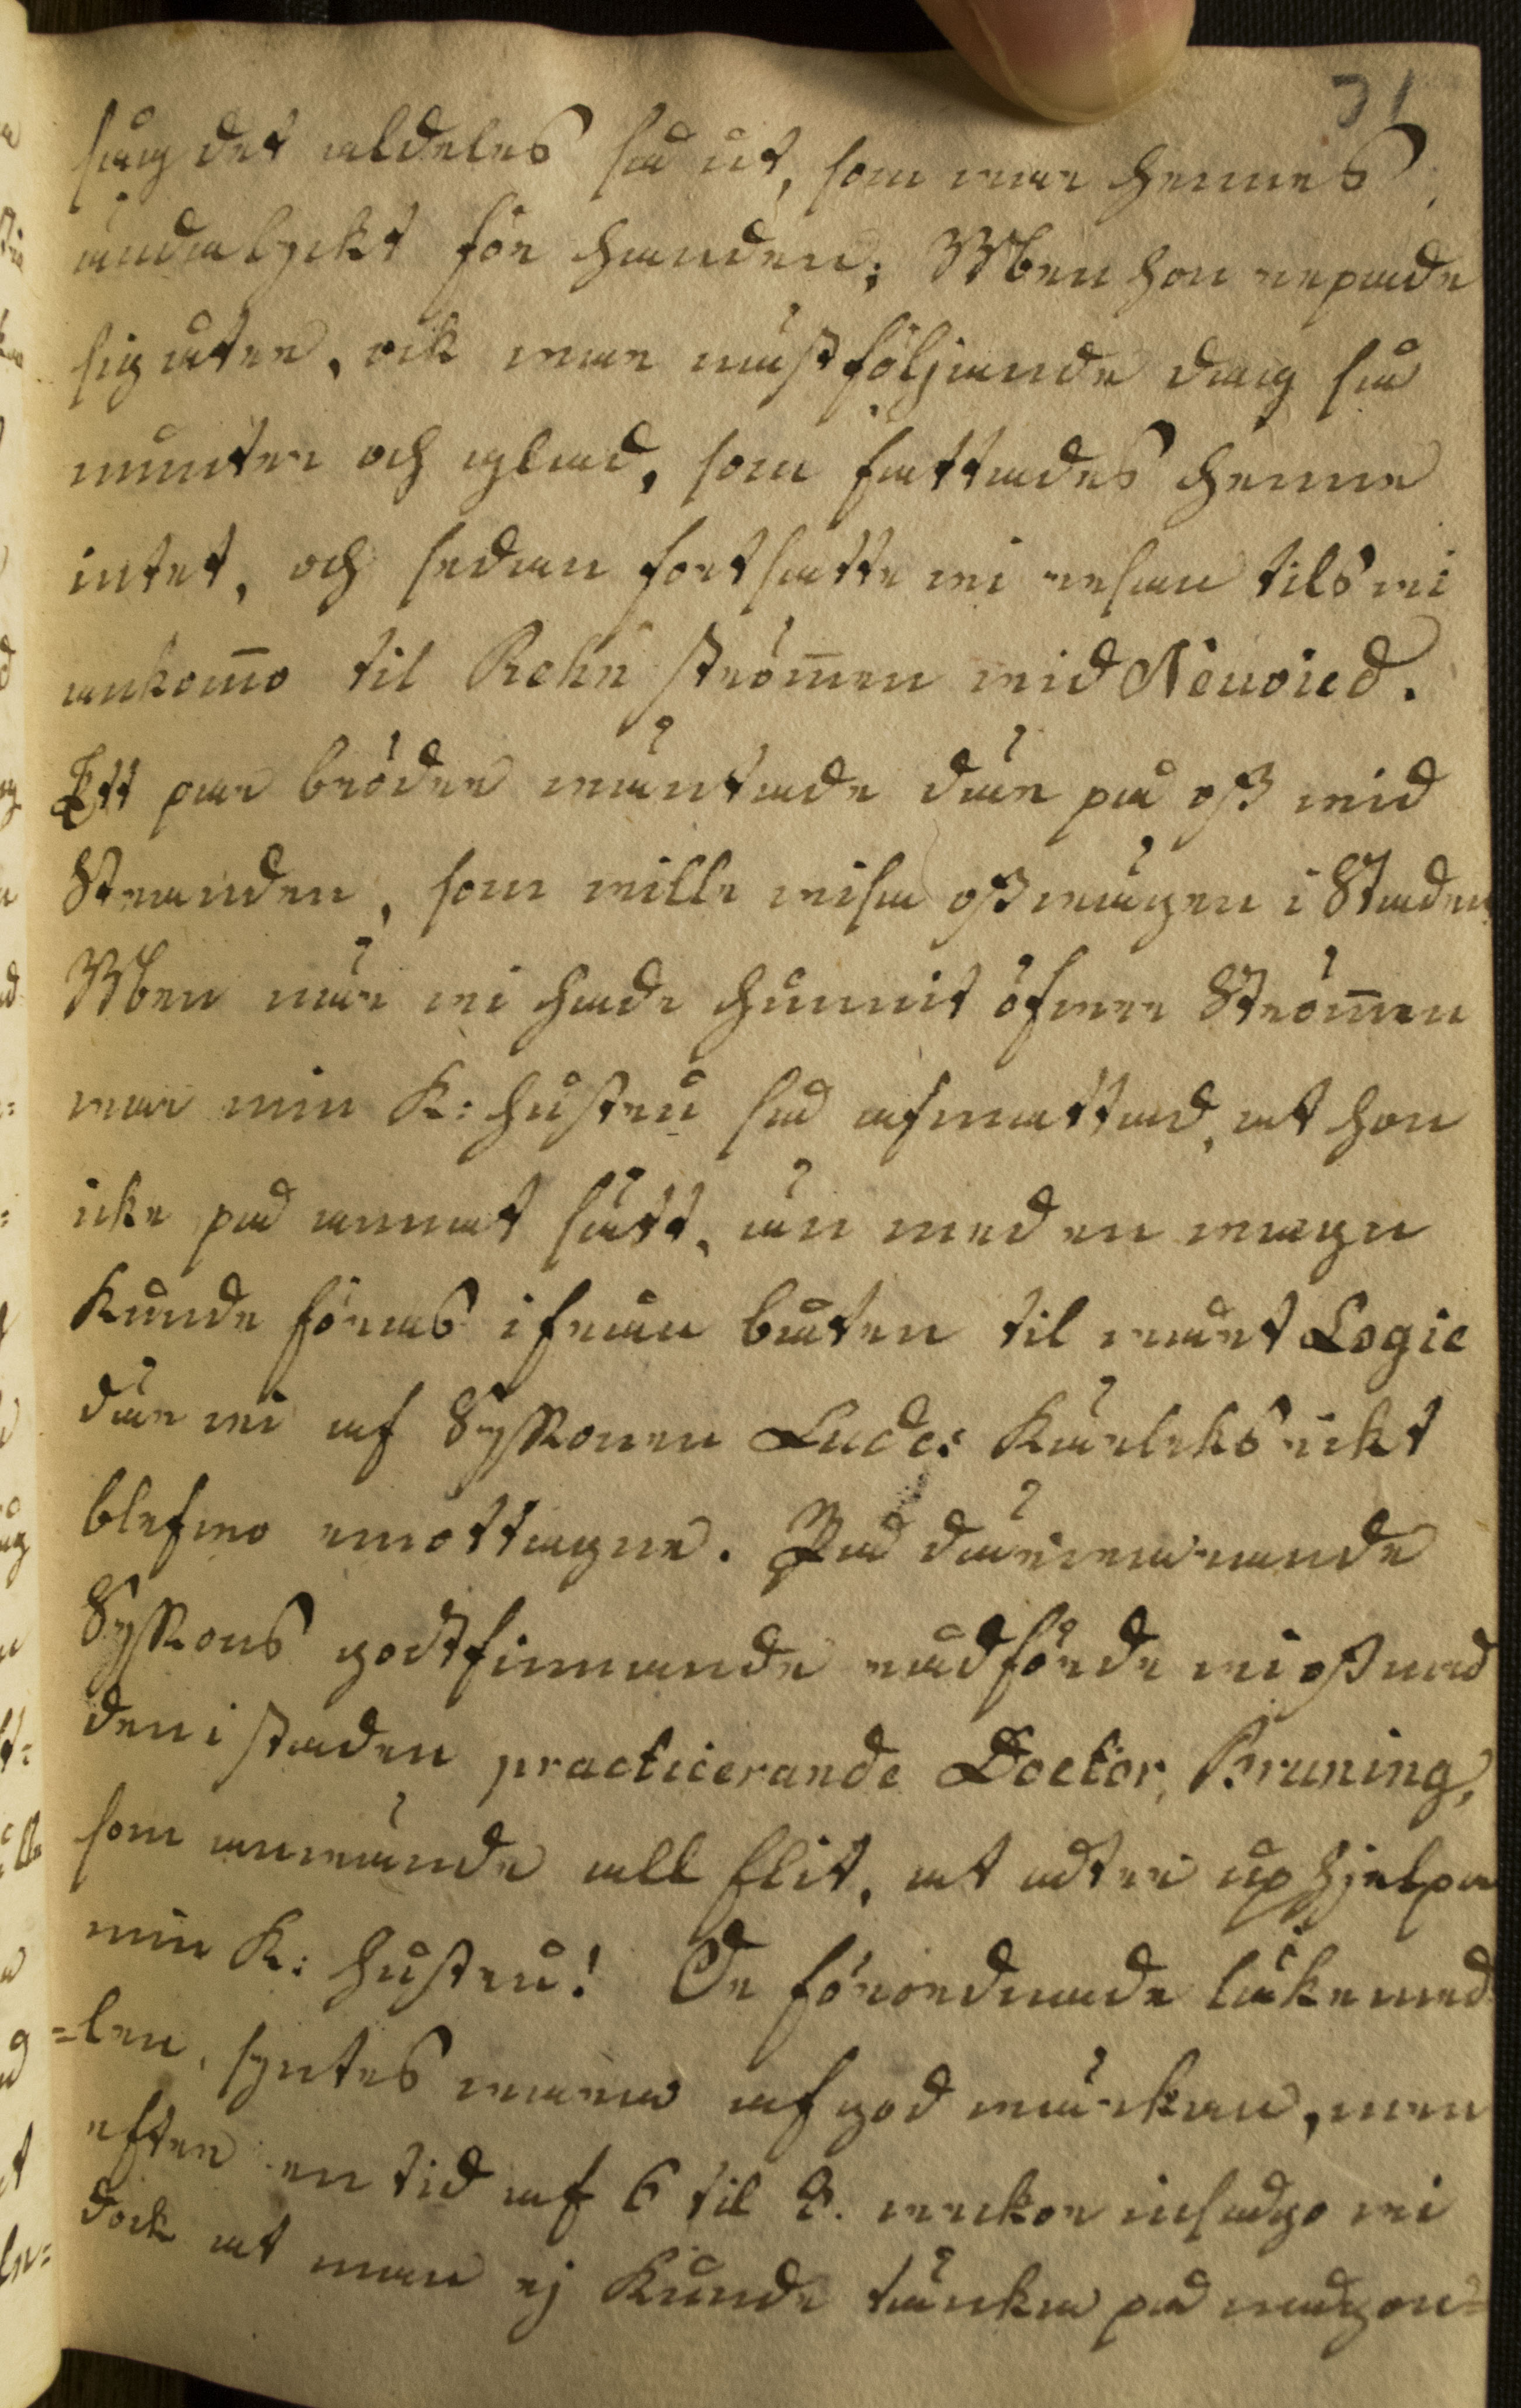 31
såg det aldeles så ut, som var hennes
ändalyckt för handen; Men hon repade
sig åter, ock var nästföljande dag så
munter och glad, som fattades henne
intet, och sedan fortsatte vi resan tils vi
ankom̄o til Rehn ström̄en vid Neuvied.
Ett par bröder väntade där på oß vid
Stranden, som ville visa oß vägen i Staden
Men när vi hade hunnit öfwer Ström̄en
var min K: hustru så afmattad, at hon
icke på annat sätt, än med en vagn
kunde föras ifrån båten til vårt Logie
där vi af Syskonen Lude: Kärleksrikt
blefwo emottagne. På därvarande
Syskons godtfinnande rådförde vi oß med
den i staden practicerande Doctor, Bruning,
som använde all flit, at åter uphjelpa
min K: hustru! De förordnade läkemed
=len, syntes vara af god värkan, men
efter en tid af 6 til 8. veckor insågo vi
dock at man ej kunde tänka på någon=